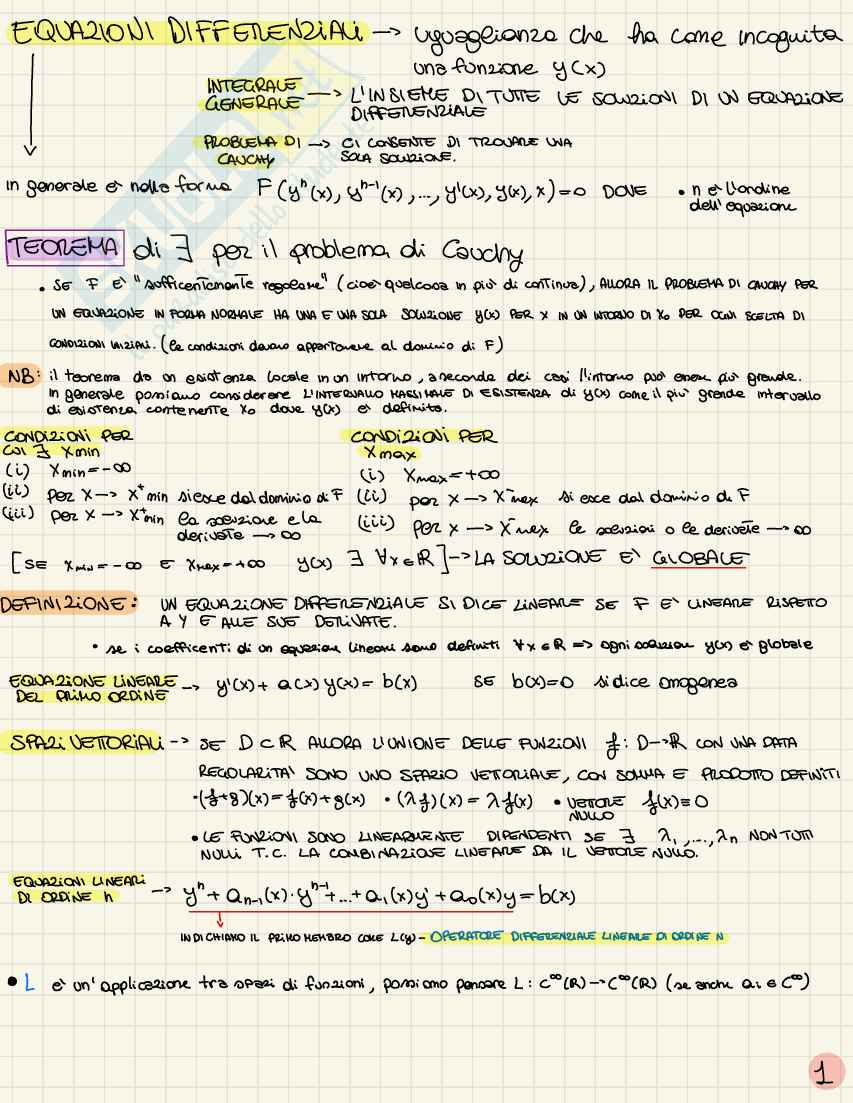 EQUAZIONI DIFFERENZIALI → uguaglianza che ha come incognita
una funzione y(x)
INTEGRALE GENERALE → L'INSIEME DI TUTTE LE SOLUZIONI DI UN EQUAZIONE
DIFFERENZIALE
PROBLEMA DI CAUCHY → CI CONSENTE DI TROVARE UNA
SOLA SOLUZIONE.
In generale è nella forma F(yⁿ(x), yⁿ⁻¹(x), ..., y'(x), y(x), x) = 0 DOVE • n è l'ordine
dell'equazione
TEOREMA di ∃ per il problema di Cauchy
• SE F E' "sufficentemente regolare" (cioè qualcosa in più di continua), ALLORA IL PROBLEMA DI CAUCHY PER
UN EQUAZIONE IN FORMA NORMALE HA UNA E UNA SOLA SOLUZIONE y(x) PER X IN UN INTORNO DI X₀ PER OGNI SCELTA DI
CONDIZIONI INIZIALI. (le condizioni devono appartenere al dominio di F)
NB: il teorema da un esistenza locale in un intorno, a seconda dei casi l'intorno può essere più grande.
In generale possiamo considerare L'INTERVALLO MASSIMALE DI ESISTENZA di y(x) come il più grande intervallo
di esistenza contenente x₀ dove y(x) è definita.
CONDIZIONI PER
CUI ∃ Xmin
(i) Xmin = -∞
(ii) per X → X⁺min si esce dal dominio di F
(iii) per X → X⁺min la soluzione e la
derivate → ∞
CONDIZIONI PER
Xmax
(i) Xmax = +∞
(ii) per x → X⁻max si esce dal dominio di F
(iii) per x → X⁻max le soluzioni o le derivate → ∞
[SE Xmin = -∞ E Xmax = +∞ y(x) ∃ ∀x∈ℝ] → LA SOLUZIONE E' GLOBALE
DEFINIZIONE: UN EQUAZIONE DIFFERENZIALE SI DICE LINEARE SE F E' LINEARE RISPETTO
A Y E ALLE SUE DERIVATE.
• se i coefficenti di un equazion lineari sono definiti ∀x∈ℝ => ogni soluzione y(x) è globale
EQUAZIONE LINEARE
DEL PRIMO ORDINE → y'(x) + a(x) y(x) = b(x) SE b(x)=0 si dice omogenea
SPAZI VETTORIALI → SE D⊂ℝ ALLORA L'UNIONE DELLE FUNZIONI f: D→ℝ CON UNA DATA
REGOLARITA' SONO UNO SPAZIO VETTORIALE, CON SOMMA E PRODOTTO DEFINITI
• (f+g)(x) = f(x)+g(x) • (λf)(x) = λf(x) • VETTORE NULLO f(x)≡0
• LE FUNZIONI SONO LINEARMENTE DIPENDENTI SE ∃ λ₁, ..., λn NON TUTTI
NULLI T.C. LA COMBINAZIONE LINEARE DA IL VETTORE NULLO.
EQUAZIONI LINEARI
DI ORDINE n → yⁿ + aₙ₋₁(x)·yⁿ⁻¹ + ... + a₁(x)y' + a₀(x)y = b(x)
INDICHIAMO IL PRIMO MEMBRO COME L(y) - OPERATORE DIFFERENZIALE LINEARE DI ORDINE N
• L è un'applicazione tra spazi di funzioni, possiamo pensare L: C^∞(ℝ) → C^∞(ℝ) (se anche aᵢ ∈ C^∞)
1